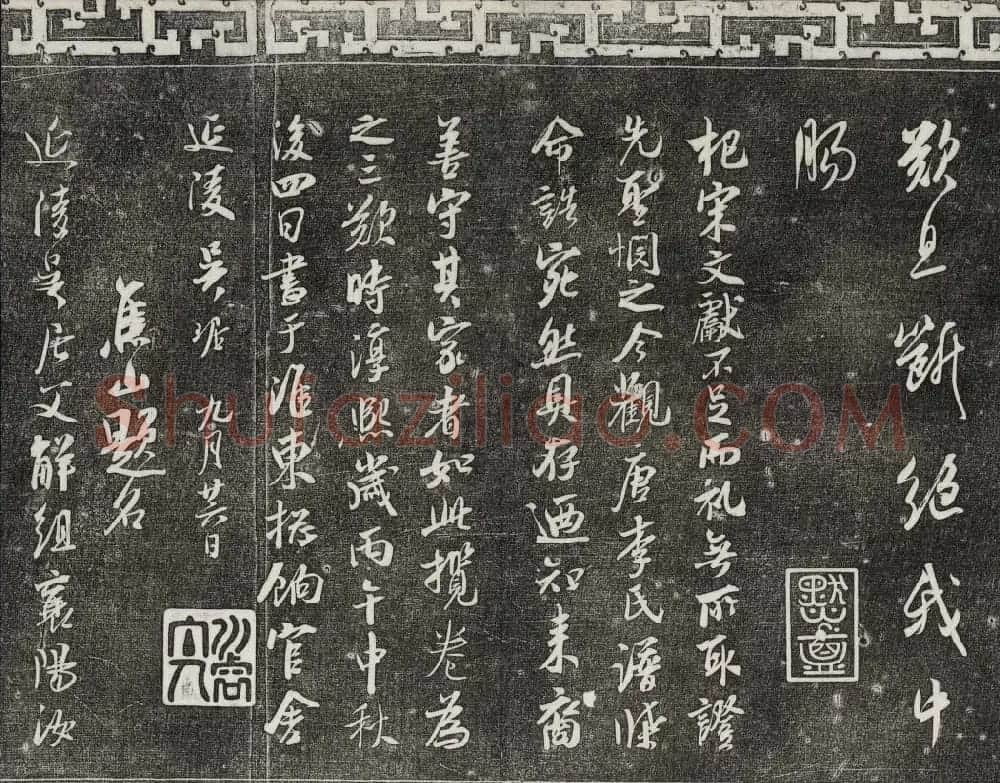 歎且斷絕我中
腸
杞宋文獻不足而礼無所取證
先聖憫之今觀唐李氏譜牒
命誥宛然具存迺知来裔
善守其家者如此攬卷為
之三歎時淳熙歲丙午中秋
後四日書于淮東揔餉官舍
延陵吳琚 九月廿六日
焦山題名
延陵吳居父解組襄陽
默盦
Shufaziliao.COM